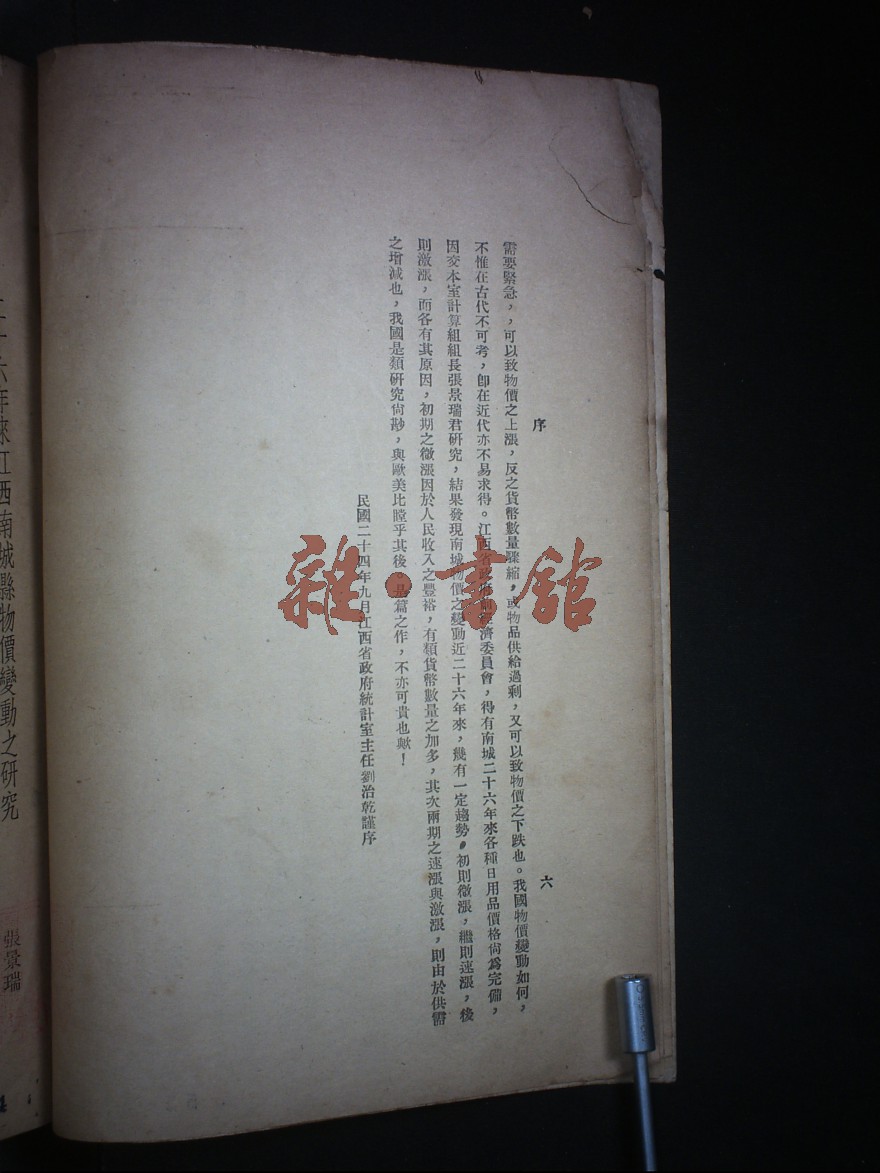 序
六
需要緊急，，可以致物價之上漲，反之貨幣數量驟縮，或物品供給過剩，又可以致物價之下跌也。我國物價變動如何，
不惟在古代不可考，卽在近代亦不易求得。江西省政府前經濟委員會，得有南城二十六年來各種日用品價格尙爲完備，
因交本室計算組組長張景瑞君硏究，結果發現南城物價之變動近二十六年來，幾有一定趨勢，初則微漲，繼則速漲，後
則激漲，而各有其原因，初期之微漲因於人民收入之豐裕，有類貨幣數量之加多，其次兩期之速漲與激漲，則由於供需
之增減也，我國是類硏究尙尠，與歐美比瞠乎其後。是篇之作，不亦可貴也歟！
民國二十四年九月江西省政府統計室主任劉治乾謹序
雜·書館
二十六年來江西南城縣物價變動之研究
張景瑞